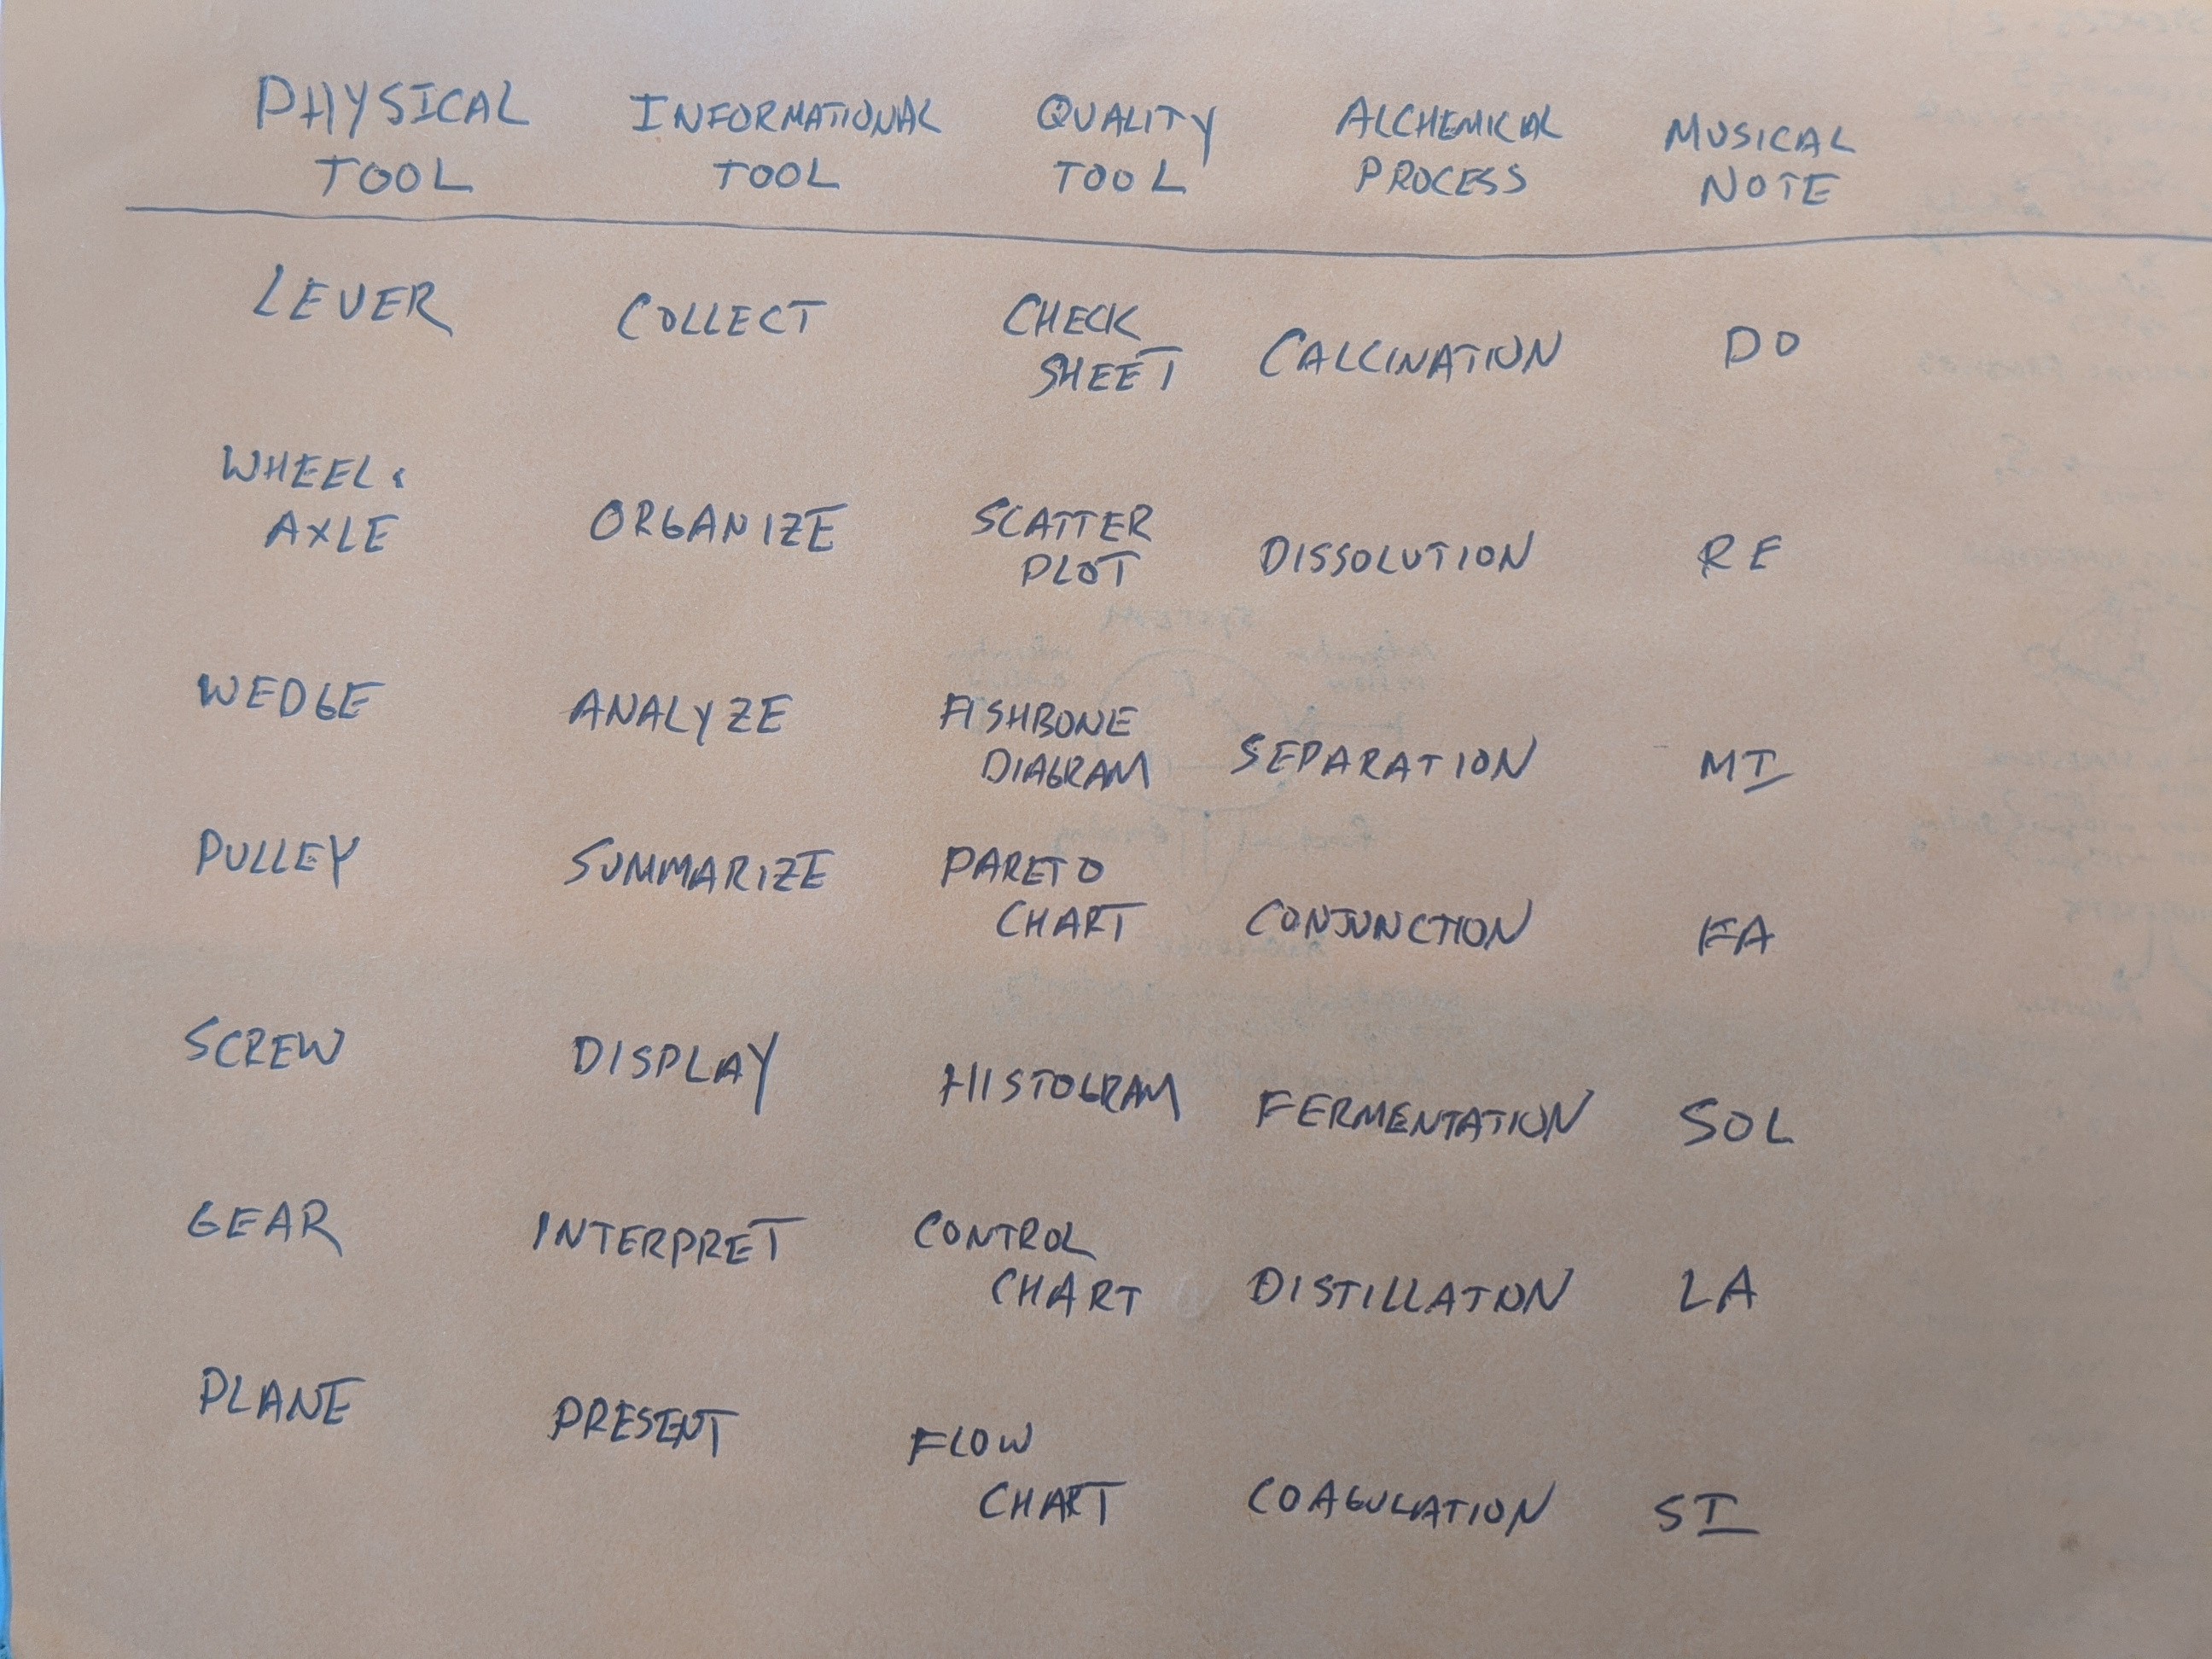 PHYSICAL TOOL INFORMATIONAL TOOL QUALITY TOOL ALCHEMICAL PROCESS MUSICAL NOTE
LEVER COLLECT CHECK SHEET CALCINATION DO
WHEEL & AXLE ORGANIZE SCATTER PLOT DISSOLUTION RE
WEDGE ANALYZE FISHBONE DIAGRAM SEPARATION MI
PULLEY SUMMARIZE PARETO CHART CONJUNCTION FA
SCREW DISPLAY HISTOGRAM FERMENTATION SOL
GEAR INTERPRET CONTROL CHART DISTILLATION LA
PLANE PRESENT FLOW CHART COAGULATION SI